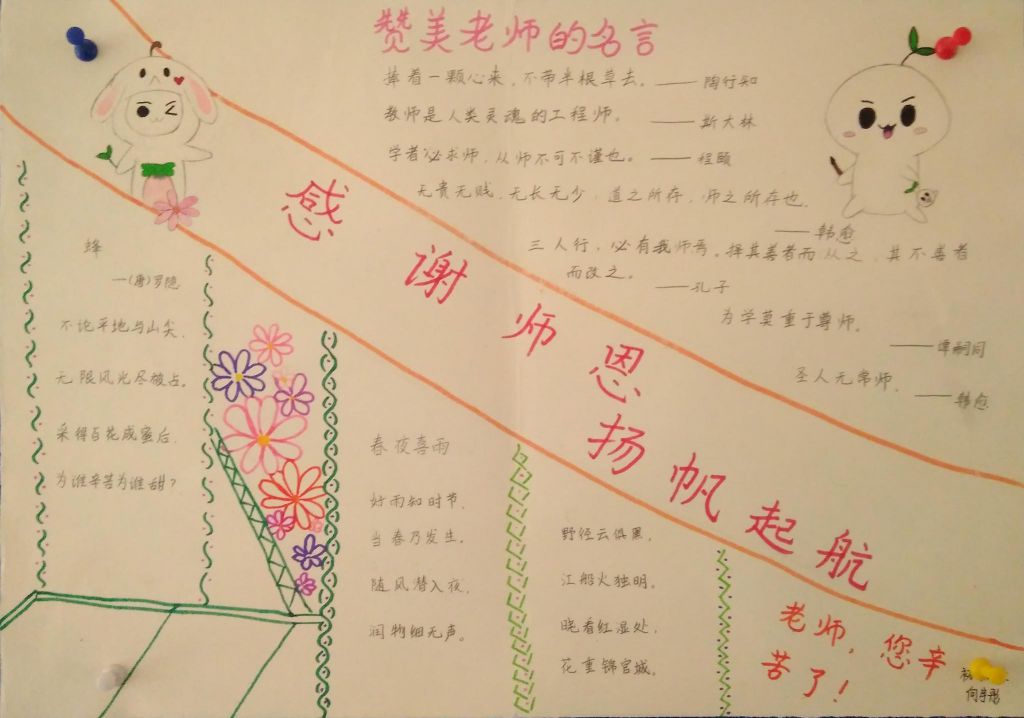 赞美老师的名言
捧着一颗心来,不带半根草去。——陶行知
教师是人类灵魂的工程师。——斯大林
学者必求师,从师不可不谨也。——程颐
无贵无贱,无长无少,道之所存,师之所存也.
——韩愈
三人行,必有我师焉。择其善者而从之,其不善者
而改之。——孔子
为学莫重于尊师.
——谭嗣同
圣人无常师.
——韩愈
感谢师恩扬帆起航
蜂
—(唐)罗隐
不论平地与山尖,
无限风光尽被占。
采得百花成蜜后,
为谁辛苦为谁甜?
春夜喜雨
好雨知时节,
当春乃发生.
随风潜入夜,
润物细无声。
野径云俱黑,
江船火独明.
晓看红湿处,
花重锦官城.
老师,您辛
苦了!